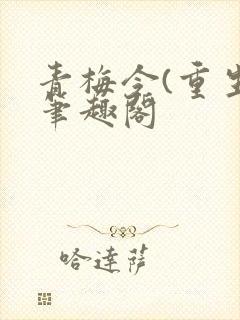 青梅令(重生
笔趣阁
哈达萨